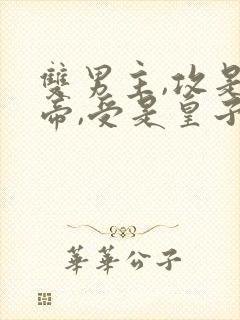 雙男主,攻是
帝,受是皇子
華華公子